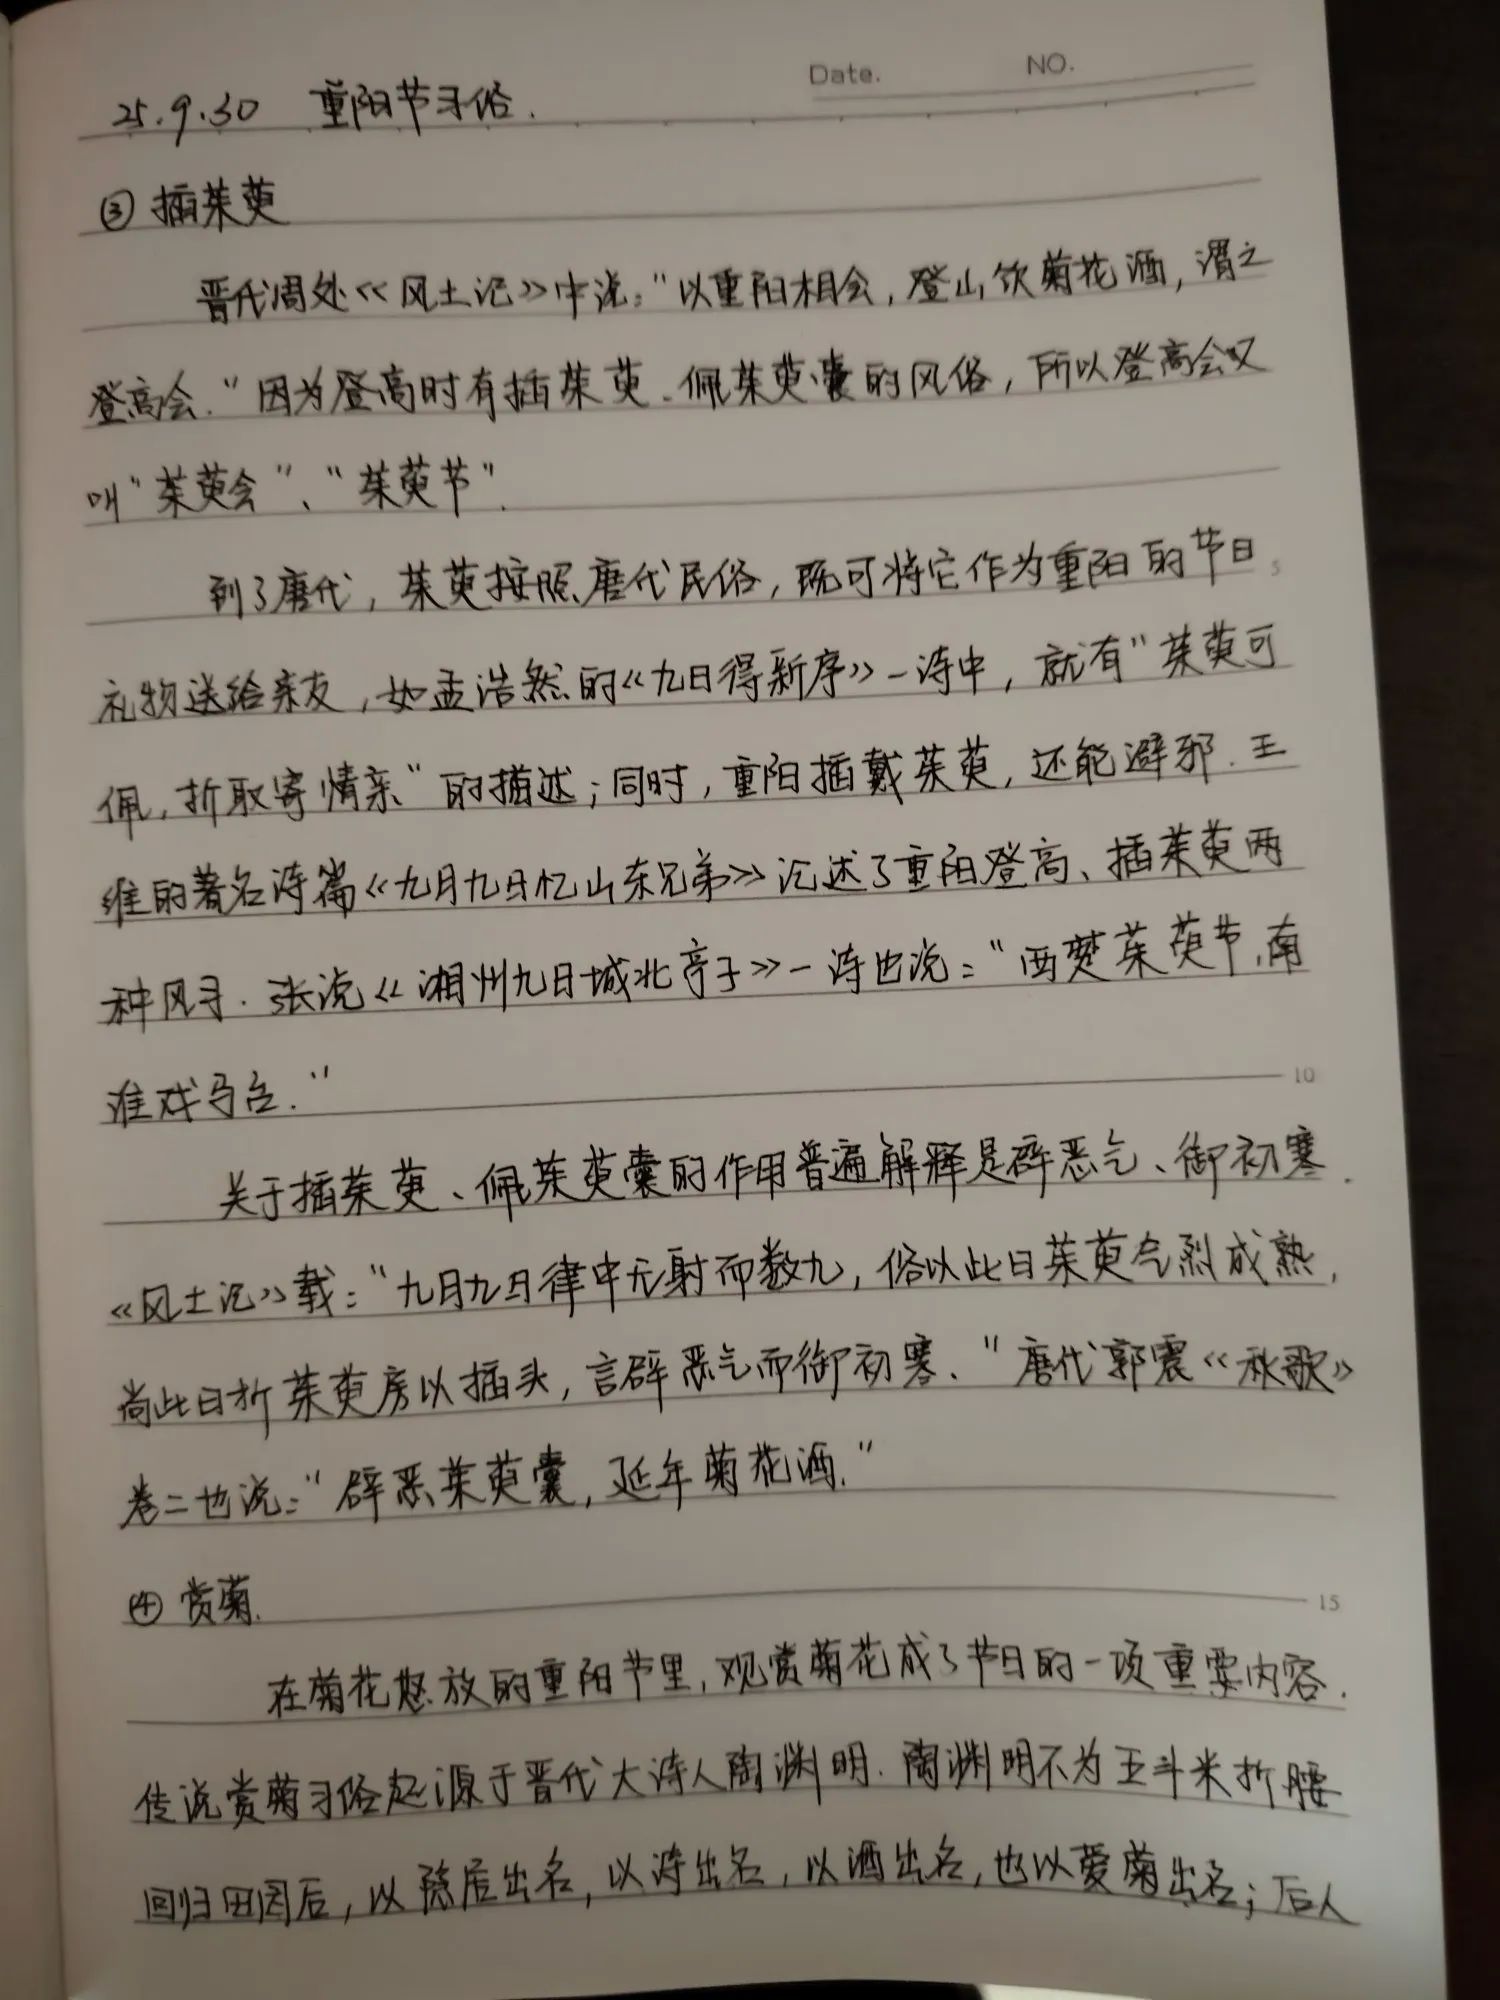 Date. NO.
25.9.30 重阳节习俗.
③ 插茱萸
晋代周处《风土记》中说:"以重阳相会,登山饮菊花酒,谓之
登高会."因为登高时有插茱萸、佩茱萸囊的风俗,所以登高会又
叫"茱萸会"、"茱萸节".
到了唐代,茱萸按照唐代民俗,既可将它作为重阳的节日
5
礼物送给亲友,如孟浩然的《九日得新序》一诗中,就有"茱萸可
佩,折取寄情亲"的描述;同时,重阳插戴茱萸,还能避邪.王
维的著名诗篇《九月九日忆山东兄弟》记述了重阳登高、插茱萸两
种风习.张说《湘州九日城北亭子》一诗也说:"西楚茱萸节,南
淮戏马台."
10
关于插茱萸、佩茱萸囊的作用普遍解释是辟恶气、御初寒.
《风土记》载:"九月九日律中无射而数九,俗以此日茱萸气烈成熟,
尚此日折茱萸房以插头,言辟恶气而御初寒."唐代郭震《秋歌》
卷二也说:"辟恶茱萸囊,延年菊花酒."
④ 赏菊.
15
在菊花怒放的重阳节里,观赏菊花成了节日的一项重要内容.
传说赏菊习俗起源于晋代大诗人陶渊明.陶渊明不为五斗米折腰
回归田园后,以隐居出名,以诗出名,以酒出名,也以爱菊出名;后人